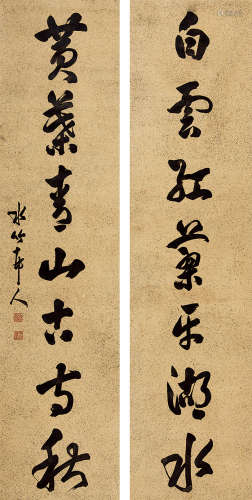 白雲紅葉平湖水
黃葉青山古寺秋
水竹邨人